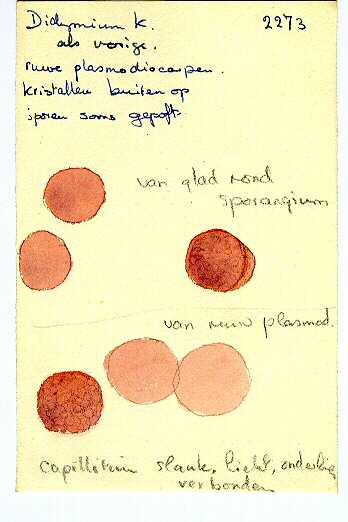 Didymium k. 2273
als vorige.
ruwe plasmodiocarpen.
kristallen buiten op
sporen soms gepoft
van glad rond
sporangium
van ruw plasmod.
capillitium slank, licht, onderling
verbonden